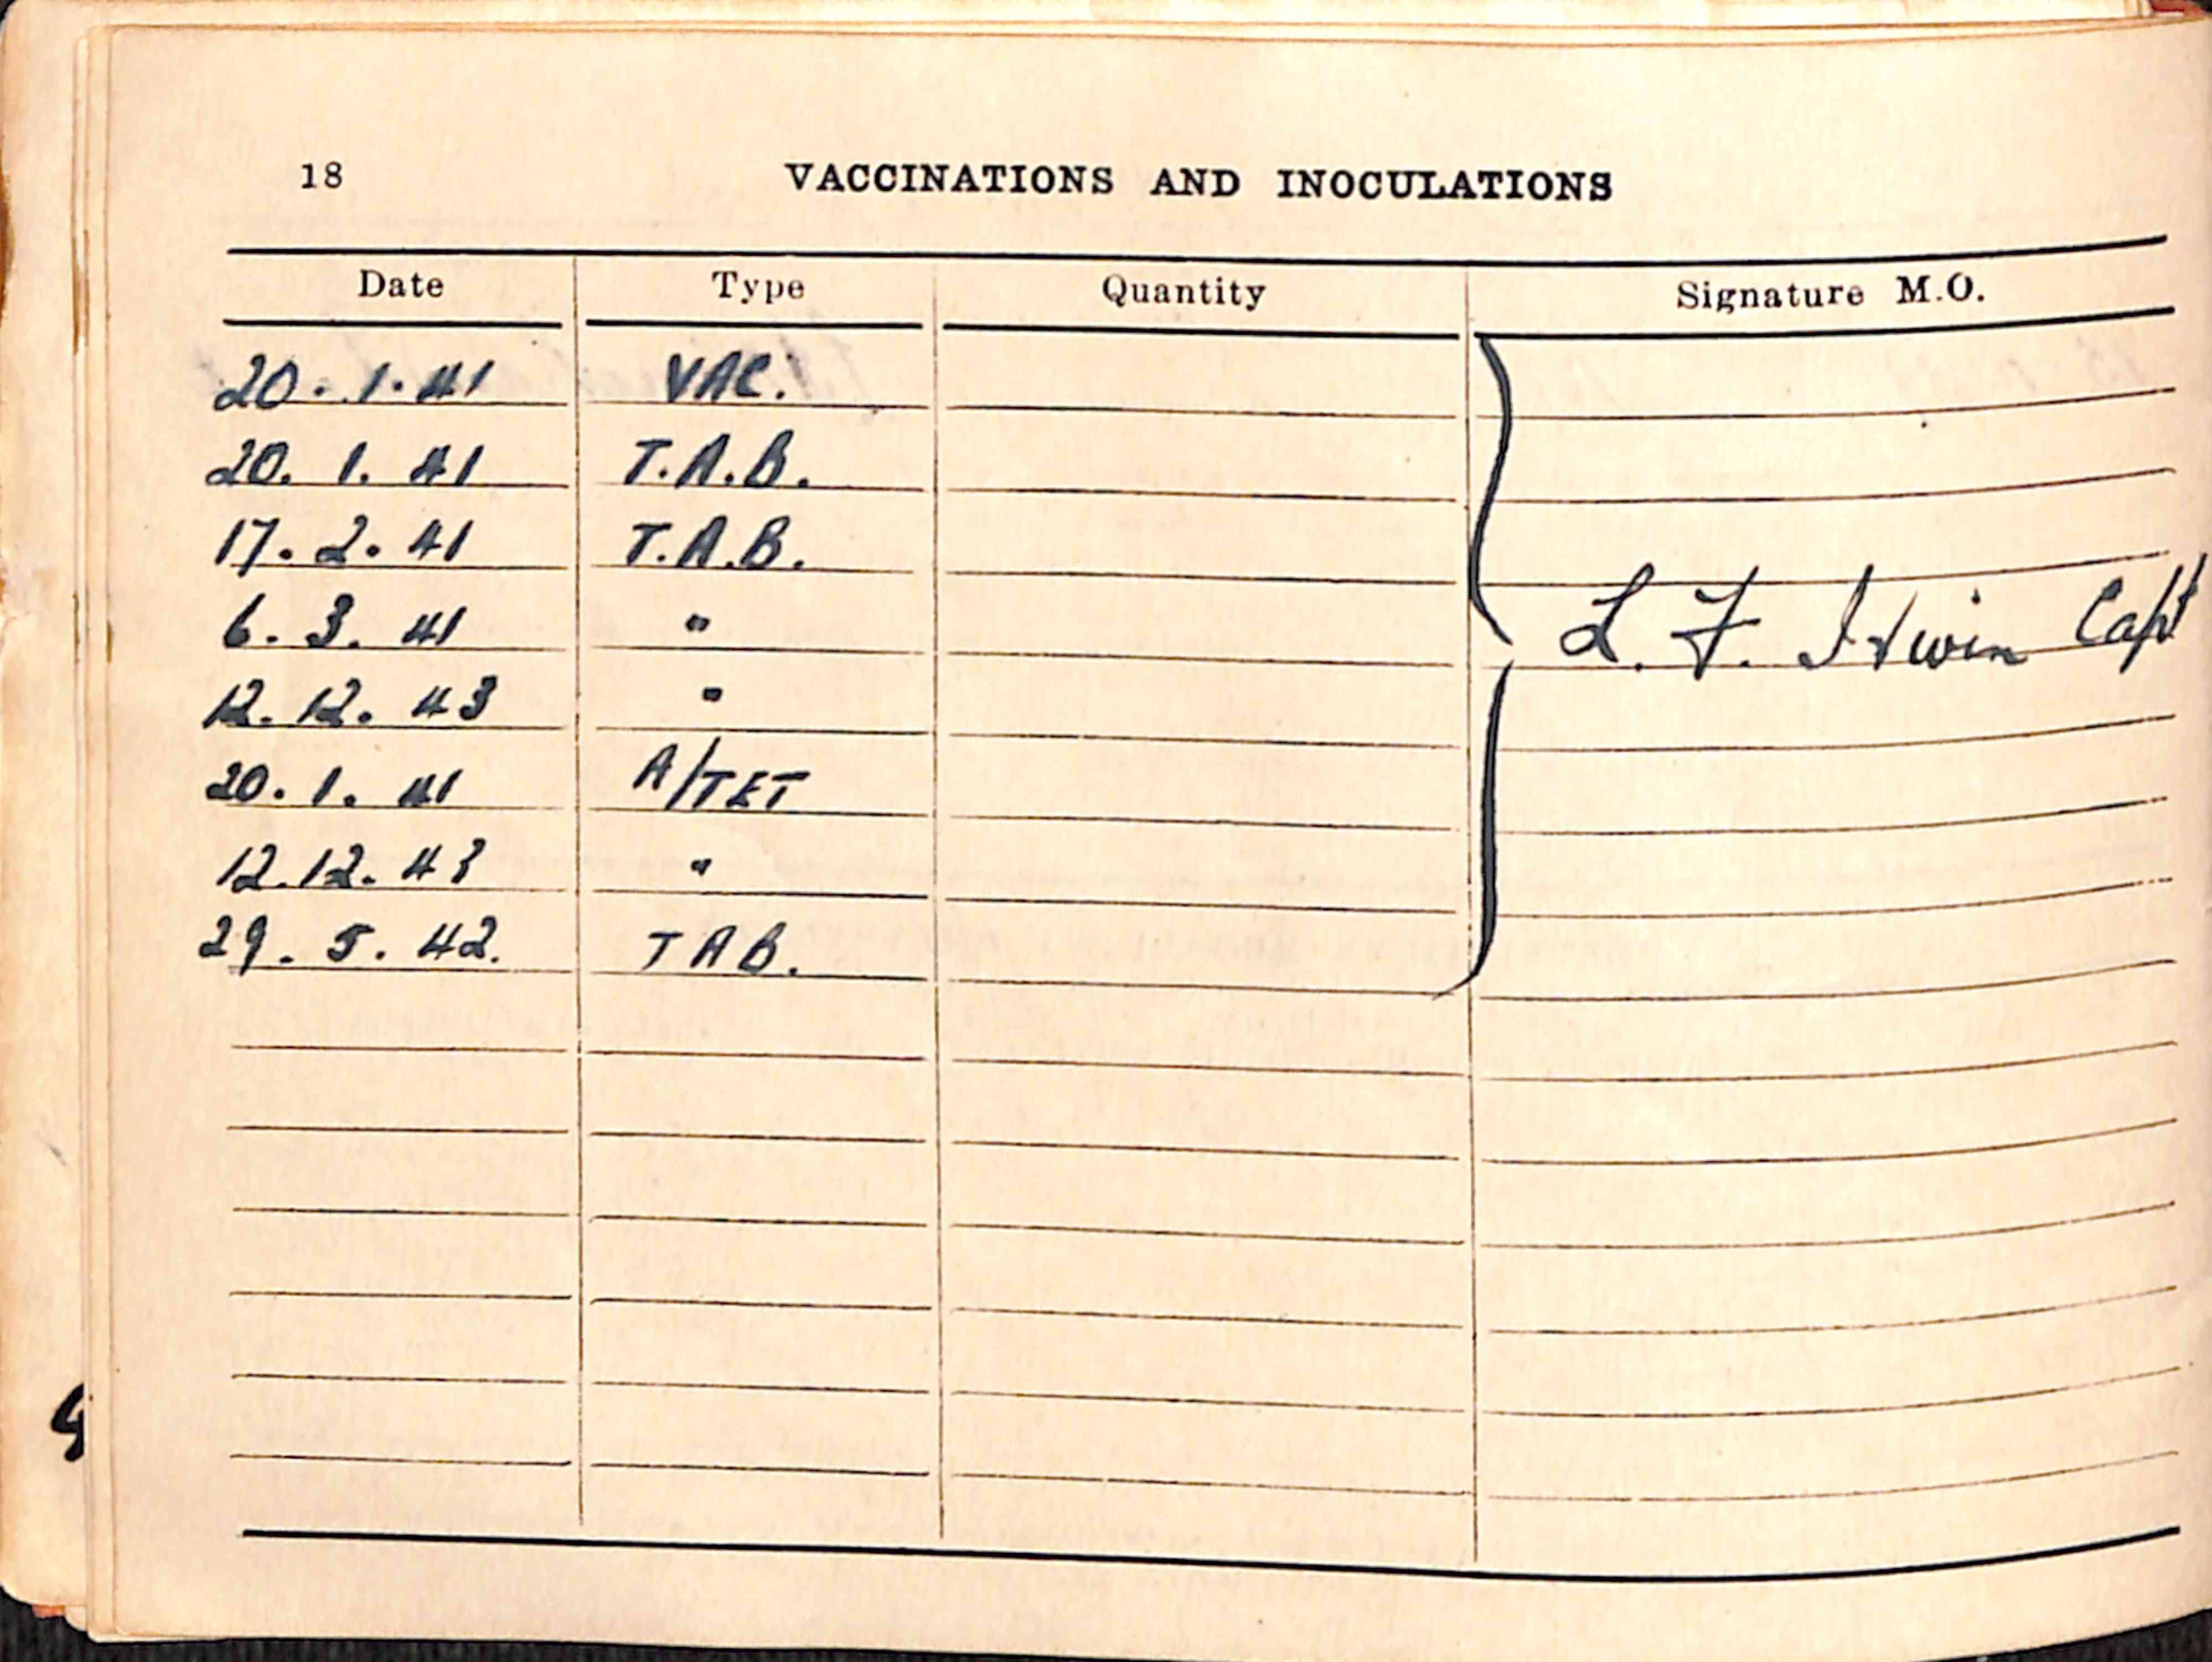 18 VACCINATIONS AND INOCULATIONS
Date Type Quantity Signature M.O.
20.1.41 VAC.
20.1.41 T.A.B.
17.2.41 T.A.B.
6.3.41 " L. F. Irwin Capt
12.12.43 "
20.1.41 A/TET
12.12.43 "
29.5.42. TAB.